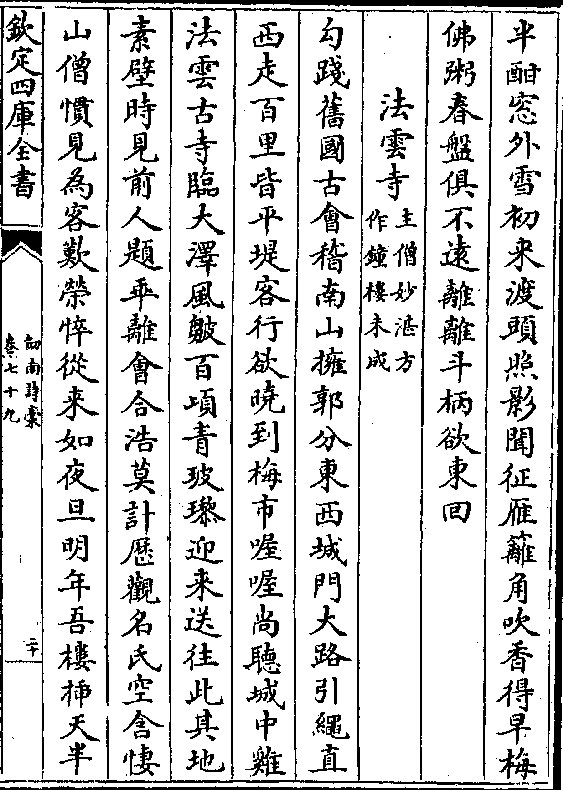 半酣窓外雪初来渡頭照影聞征雁籬角吹香得早梅
佛粥春盤俱不遠離離斗柄欲東回
法雲寺主僧妙湛方
作鐘樓未成
勾踐舊國古會稽南山擁郭分東西城門大路引繩直
西走百里皆平堤客行欲曉到梅市喔喔尚聽城中雞
法雲古寺臨大澤風皺百頃青玻瓈迎来送往此其地
素壁時見前人題乖離會合浩莫計歴觀名氏空含悽
山僧慣見為客歎榮悴從来如夜旦明年吾樓揷天半
欽定四庫全書
劒南詩稾
卷七十九
二十